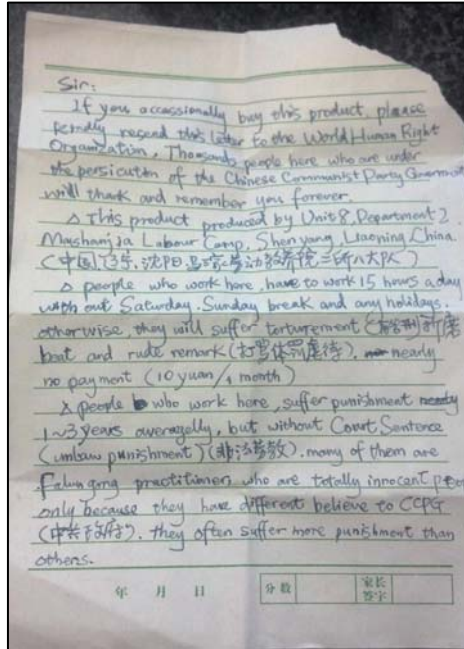 Sir:
If you occassionally buy this product, please
kindly resend this letter to the World Human Right
Organization. Thousands people here who are under
the persicution of the Chinese Communist Party Government
will thank and remember you forever.
△ This product produced by Unit 8, Department 2,
Mashanjia Labour Camp, Shenyang, Liaoning, China.
(中国,辽宁,沈阳,马三家劳动教养院二所八大队)
△ people who work here, have to work 15 hours a day
with out Saturday, Sunday break and any holidays.
otherwise, they will suffer torturement (折磨
beat and rude remark (打骂体罚虐待). nearly
no payment (10 yuan/1 month)
△ people who work here, suffer punishment
1~3 years averagelly, but without Court Sentence
(unlaw punishment) (非法劳教). many of them are
Falun gong practitioner, who are totally innocent
only because they have different believe to CCPG
(中共政府). they often suffer more punishment than
others.
年 月 日 分数 家长
签字